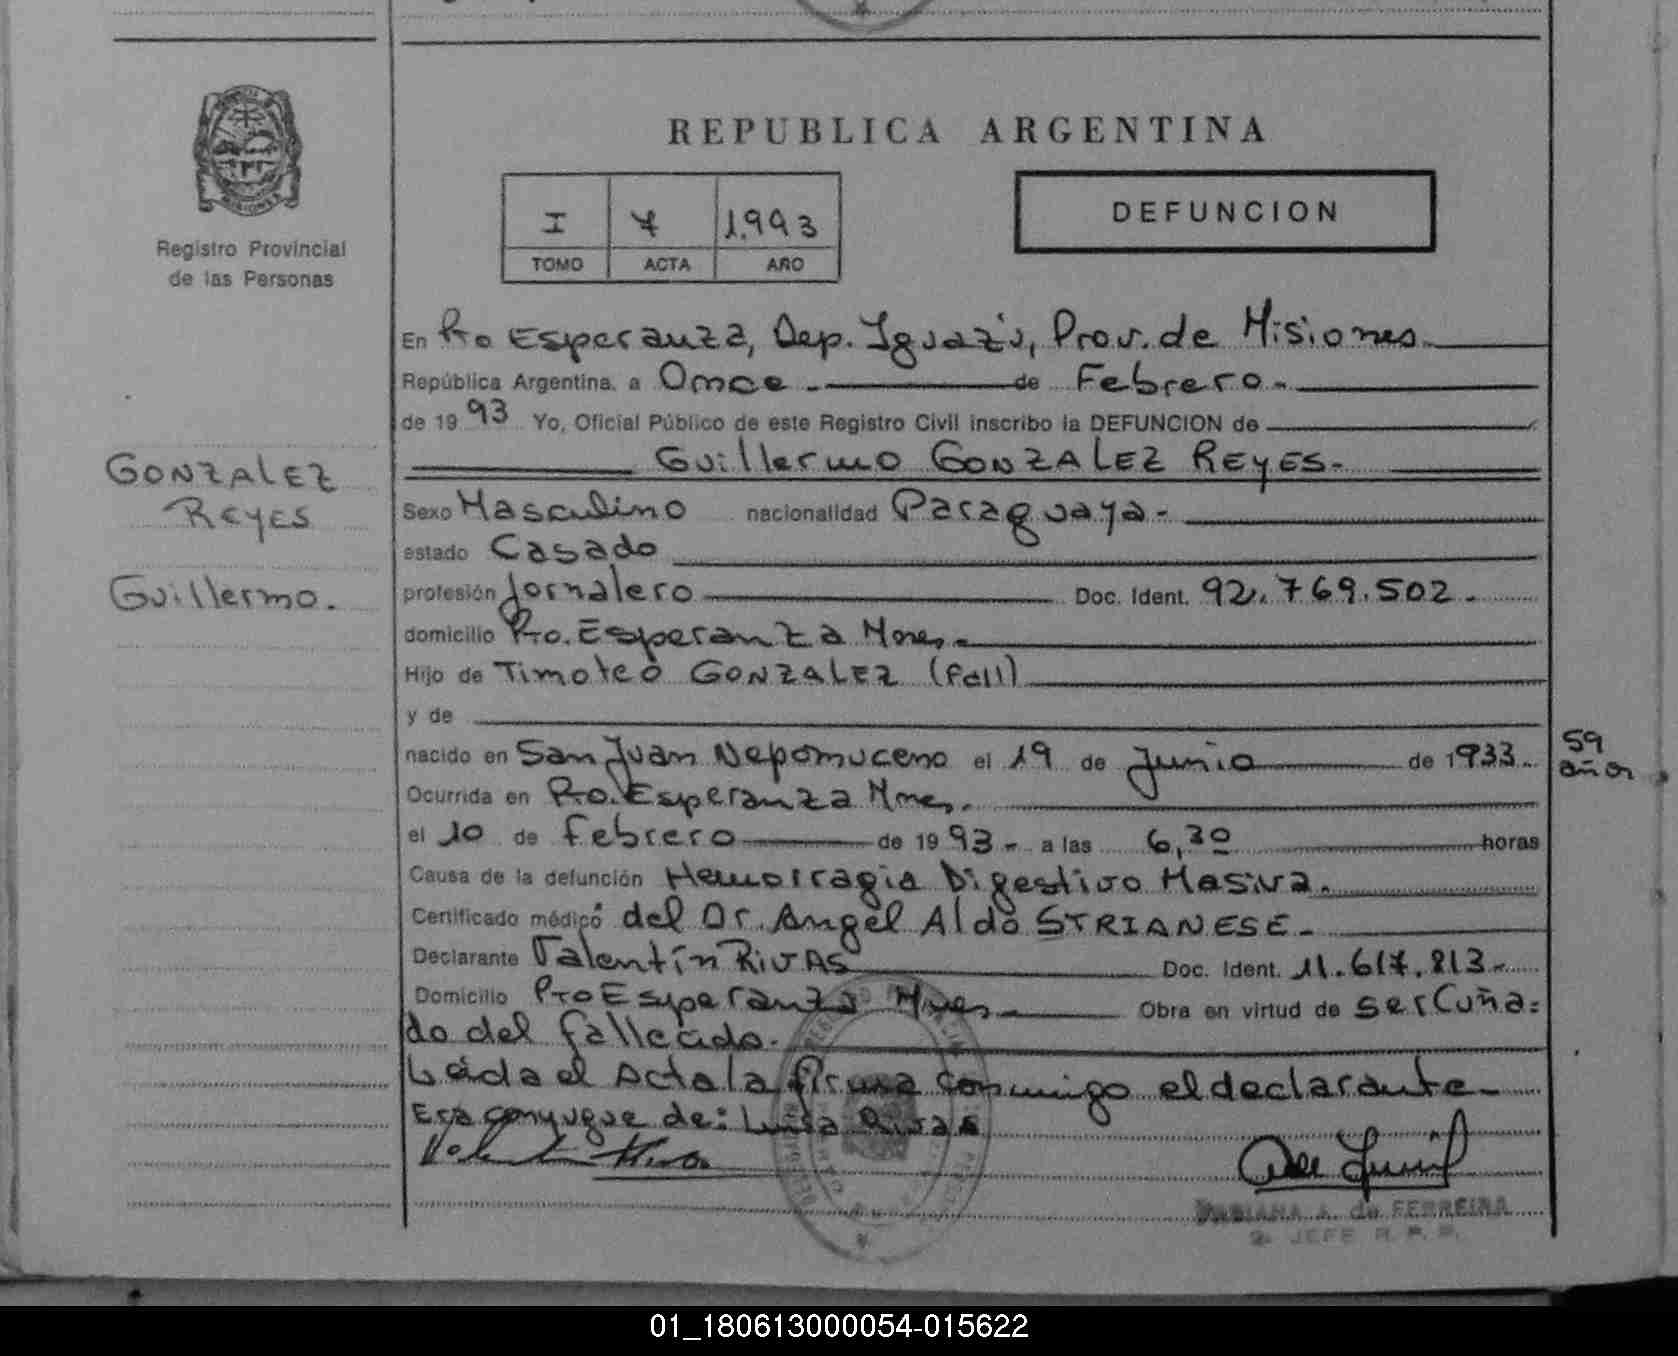 REPUBLICA ARGENTINA
I 7 1.993
TOMO ACTA AÑO
DEFUNCION
Registro Provincial
de las Personas
GONZALEZ
REYES
Guillermo.
En Pto Esperanza, Dep. Iguazú, Prov. de Misiones.
República Argentina, a Once.- de Febrero.-
de 1993 Yo, Oficial Público de este Registro Civil inscribo la DEFUNCION de
Guillermo GONZALEZ REYES.-
Sexo Masculino nacionalidad Paraguaya.-
estado Casado
profesión Jornalero Doc. Ident. 92.769.502.
domicilio Pto. Esperanza Mnes.-
Hijo de Timoteo GONZALEZ (fall)
y de
nacido en San Juan Nepomuceno el 19 de Junio de 1933.
59
años
Ocurrida en Pto. Esperanza Mnes.
el 10 de Febrero de 1993.- a las 6,30 horas
Causa de la defunción Hemorragia Digestivo Masiva.
Certificado médico del Dr. Angel Aldo STRIANESE.-
Declarante Valentín RIVAS Doc. Ident. 11.617.213.-
Domicilio Pto Esperanza Mnes.- Obra en virtud de ser Cuña=
do del fallecido.-
Leída el Acta la firma conmigo el declarante-
Era conyugue de: Luisa Rivas
FABIANA A. de FERREIRA
JEFE R. P. P.
01_180613000054-015622